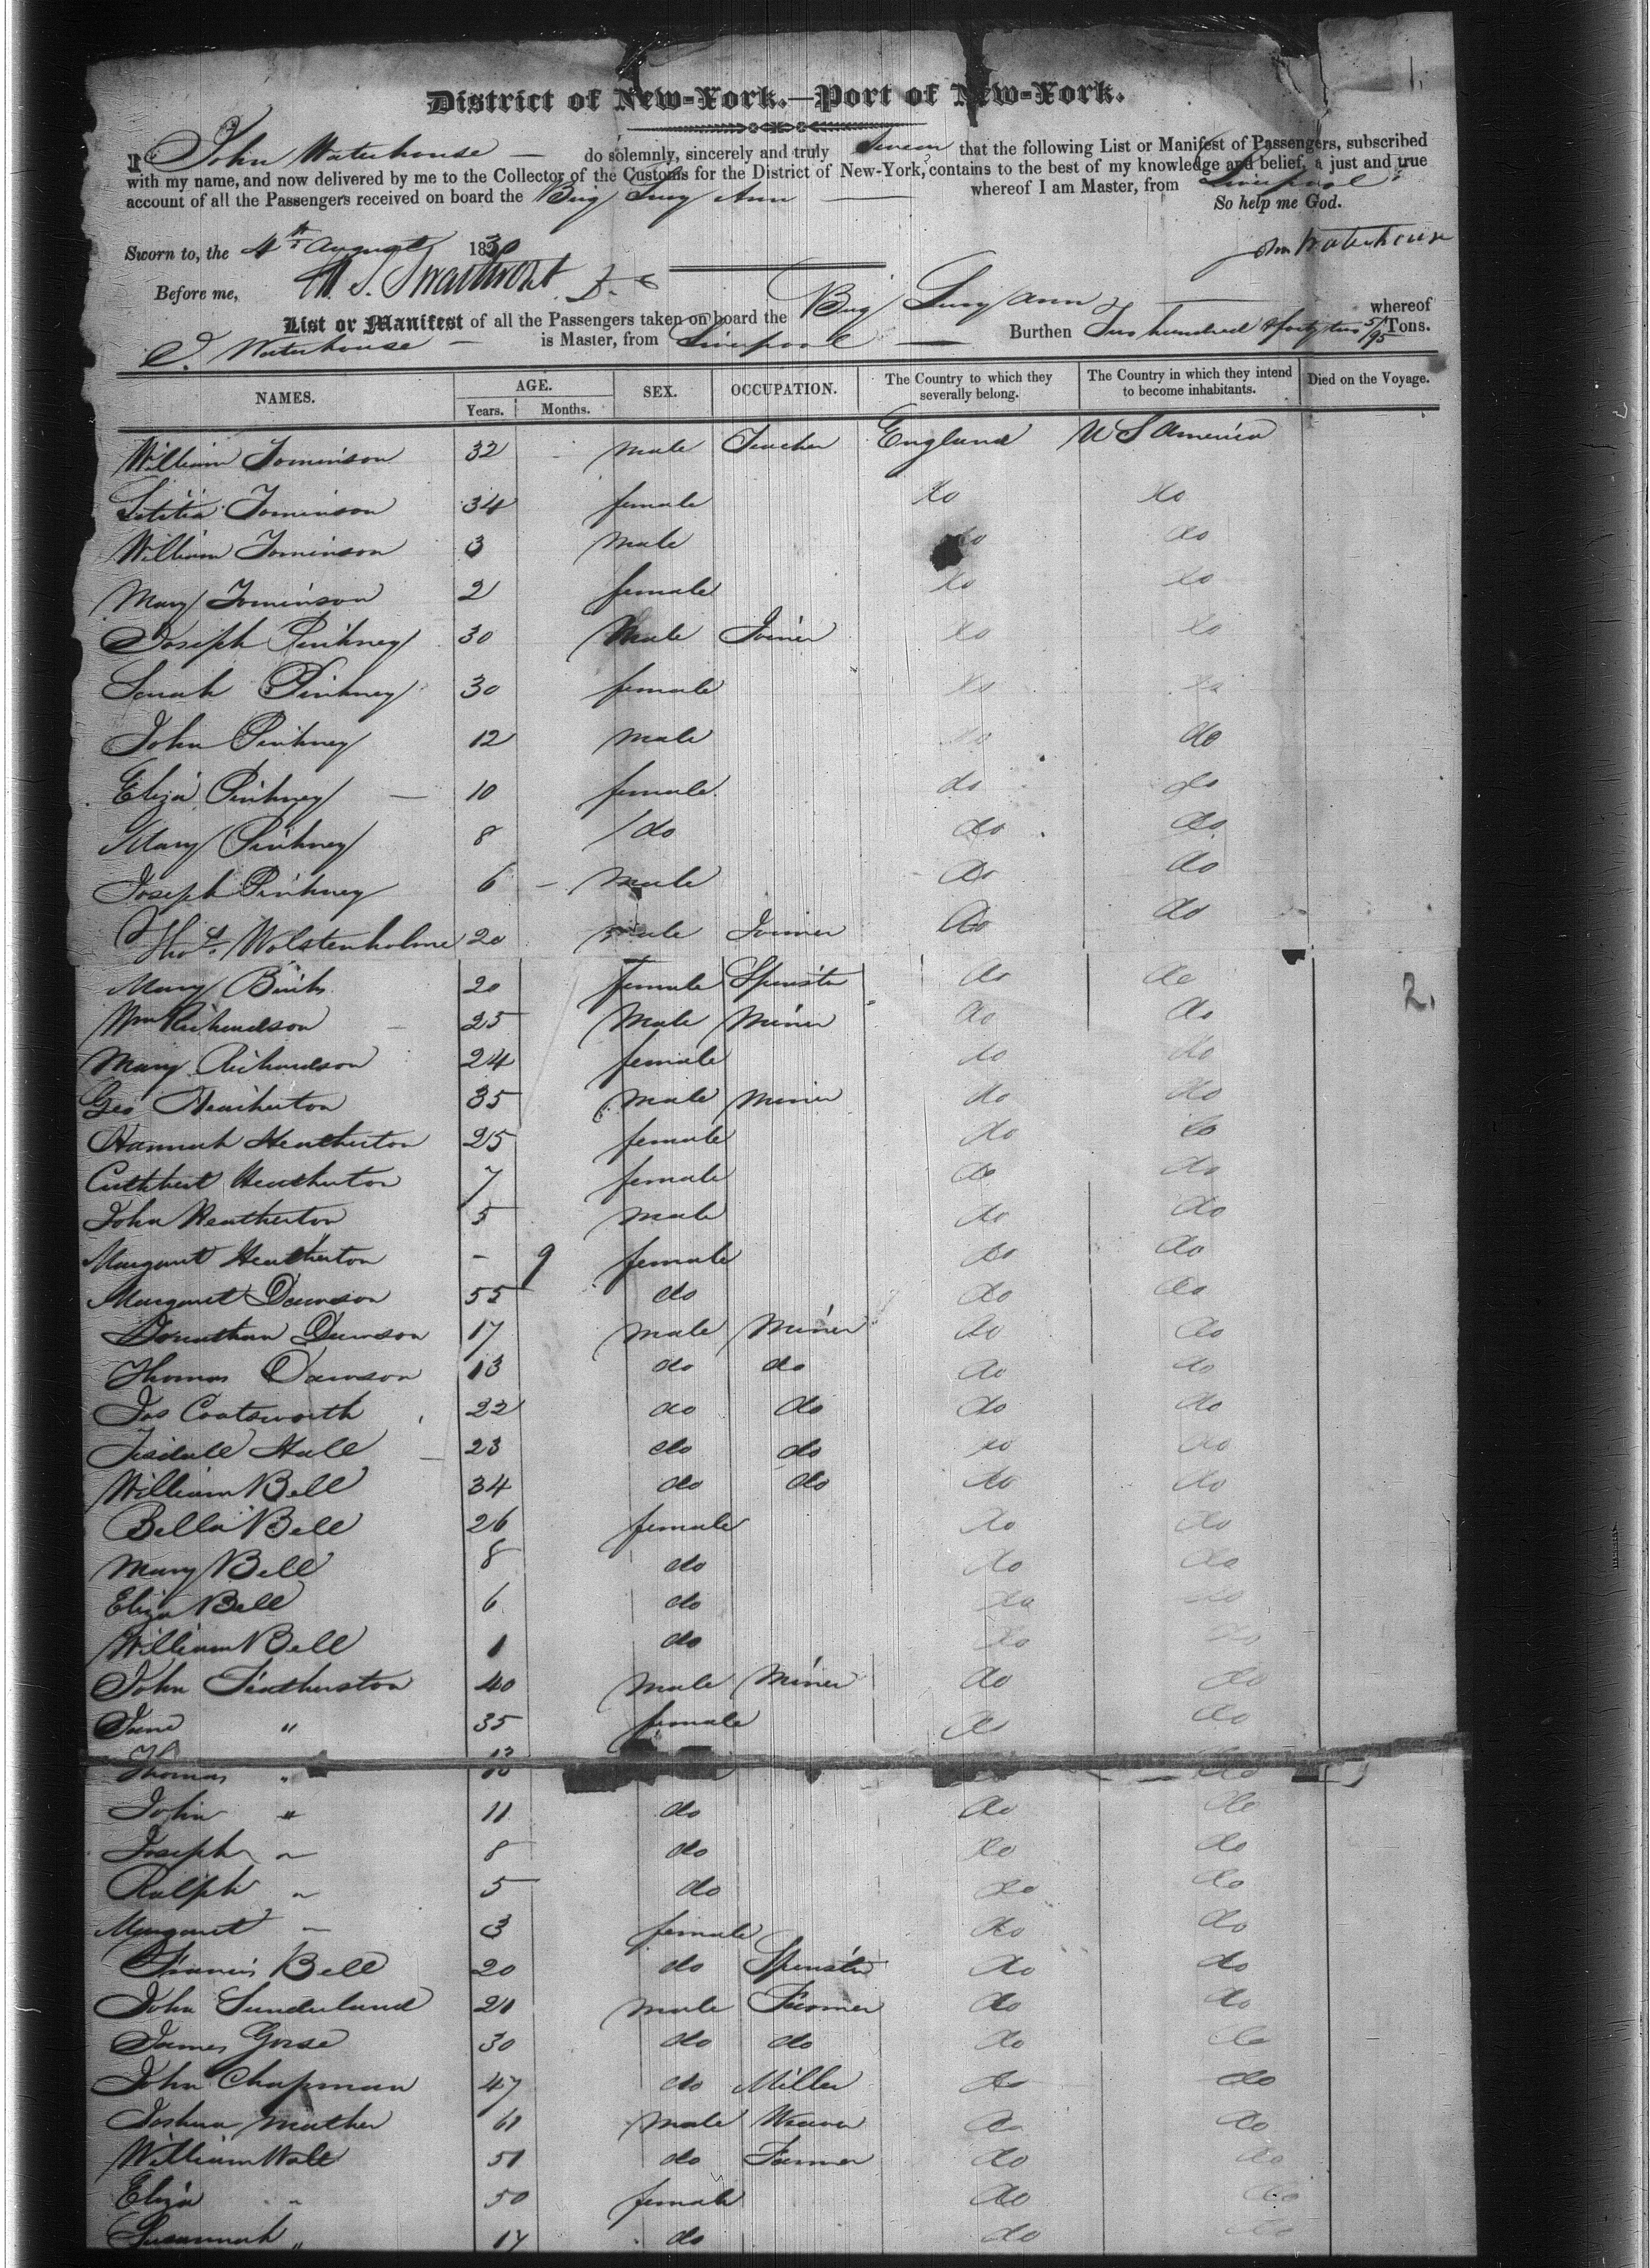 1.
District of New-York.—Port of New-York.
I John Waterhouse — do solemnly, sincerely and truly Swear that the following List or Manifest of Passengers, subscribed
with my name, and now delivered by me to the Collector of the Customs for the District of New-York, contains to the best of my knowledge and belief, a just and true
account of all the Passengers received on board the Brig Lucy Ann — whereof I am Master, from Liverpool
So help me God.
Sworn to, the 4th August 1830 John Waterhouse
Before me,
List or Manifest of all the Passengers taken on board the Brig Lucy Ann — whereof
J. Waterhouse — is Master, from Liverpool — Burthen Two hundred & forty two 51/95 Tons.
NAMES. AGE. SEX. OCCUPATION. The Country to which they severally belong. The Country in which they intend to become inhabitants. Died on the Voyage.
Years. Months.
William Tominson 32 male Teacher England U S America
Letitia Tominson 34 female do do
William Tominson 3 male do do
Mary Tominson 2 female do do
Joseph Pinkney 30 Male Joiner do do
Sarah Pinkney 30 female do do
John Pinkney 12 male do do
Eliza Pinkney — 10 female do do
Mary Pinkney 8 do do do
Joseph Pinkney 6 - male do do
Thos. Wolstenholme 20 male Joiner do do
Mary 20 female Spinster do do
2.
Wm Richardson 25 Male Miner do do
Mary Richardson 24 female do do
Geo Heatherton 35 male miner do do
Hannah Heatherton 25 female do do
Cuthbert Heatherton 7 female do do
John Heatherton 5 male do do
Margaret Heatherton - 9 female do do
Margaret Dawson 55 do do do
Jonathan Dawson 17 male Miner do do
Thomas Dawson 13 do do do do
Jos Coatsworth 22 do do do do
Tisdale Hall 23 do do do do
William Bell 34 do do do do
Bella Bell 26 female do do
Mary Bell 8 do do do
Eliza Bell 6 do do do
William Bell 1 do do do
John Featherston 40 male Miner do do
Jane " 35 female do do
Thomas " 13 do
John " 11 do do do
Joseph " 8 do do do
Ralph " 5 do do do
Margaret " 3 female do do
Francis Bell 20 do Spinster do do
John Sunderland 21 male Farmer do do
James Gorse 30 do do do do
John Chapman 47 do Miller do do
Joshua Mather 61 male Weaver do do
William Wall 51 do Farmer do do
Eliza " 50 female do do
Susannah " 17 do do do